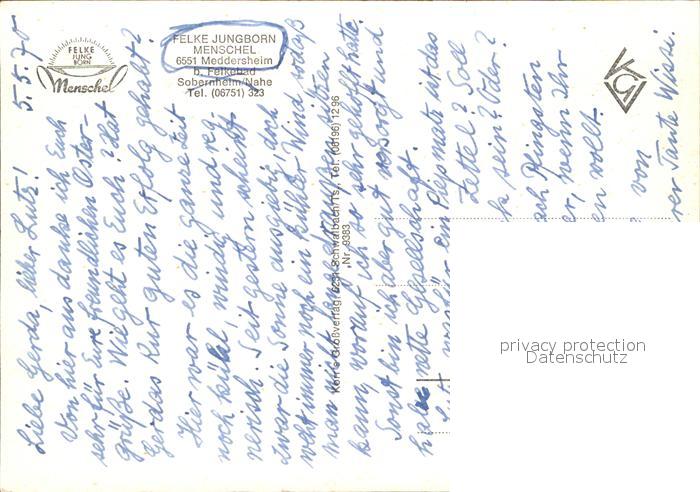 FELKE
JUNG
BORN
Menschel
FELKE JUNGBORN
MENSCHEL
6551 Meddersheim
b. Felkebad
Sobernheim/Nahe
Tel. (06751) 323
5.5.70
Liebe Gerda, lieber Lutz!
Von hier aus danke ich Euch
sehr für Eure freundlichen Oster-
grüße. Wie geht es Euch? Hat
Gerdas Kur guten Erfolg gehabt?
Hier war es die ganze Zeit
noch kühl, windig und reg-
nerisch. Seit gestern scheint
zwar die Sonne ausgiebig, doch
weht immer noch ein kühler Wind, sodaß
man nicht draußen sitzen
kann, worauf ich so sehr gehofft hatte.
Sonst bin ich aber gut versorgt und
habe nette Gesellschaft.
ein Pießmatz ist das
Zettel? Soll
sein? Oder?
ach Pfingsten
er, wenn Ihr
en wollt.
von
rer Tante Wissi.
Korr's Großverlag, 6231 Schwalbach/Ts., Tel. (06196) 1296
Nr. 9383
privacy protection
Datenschutz